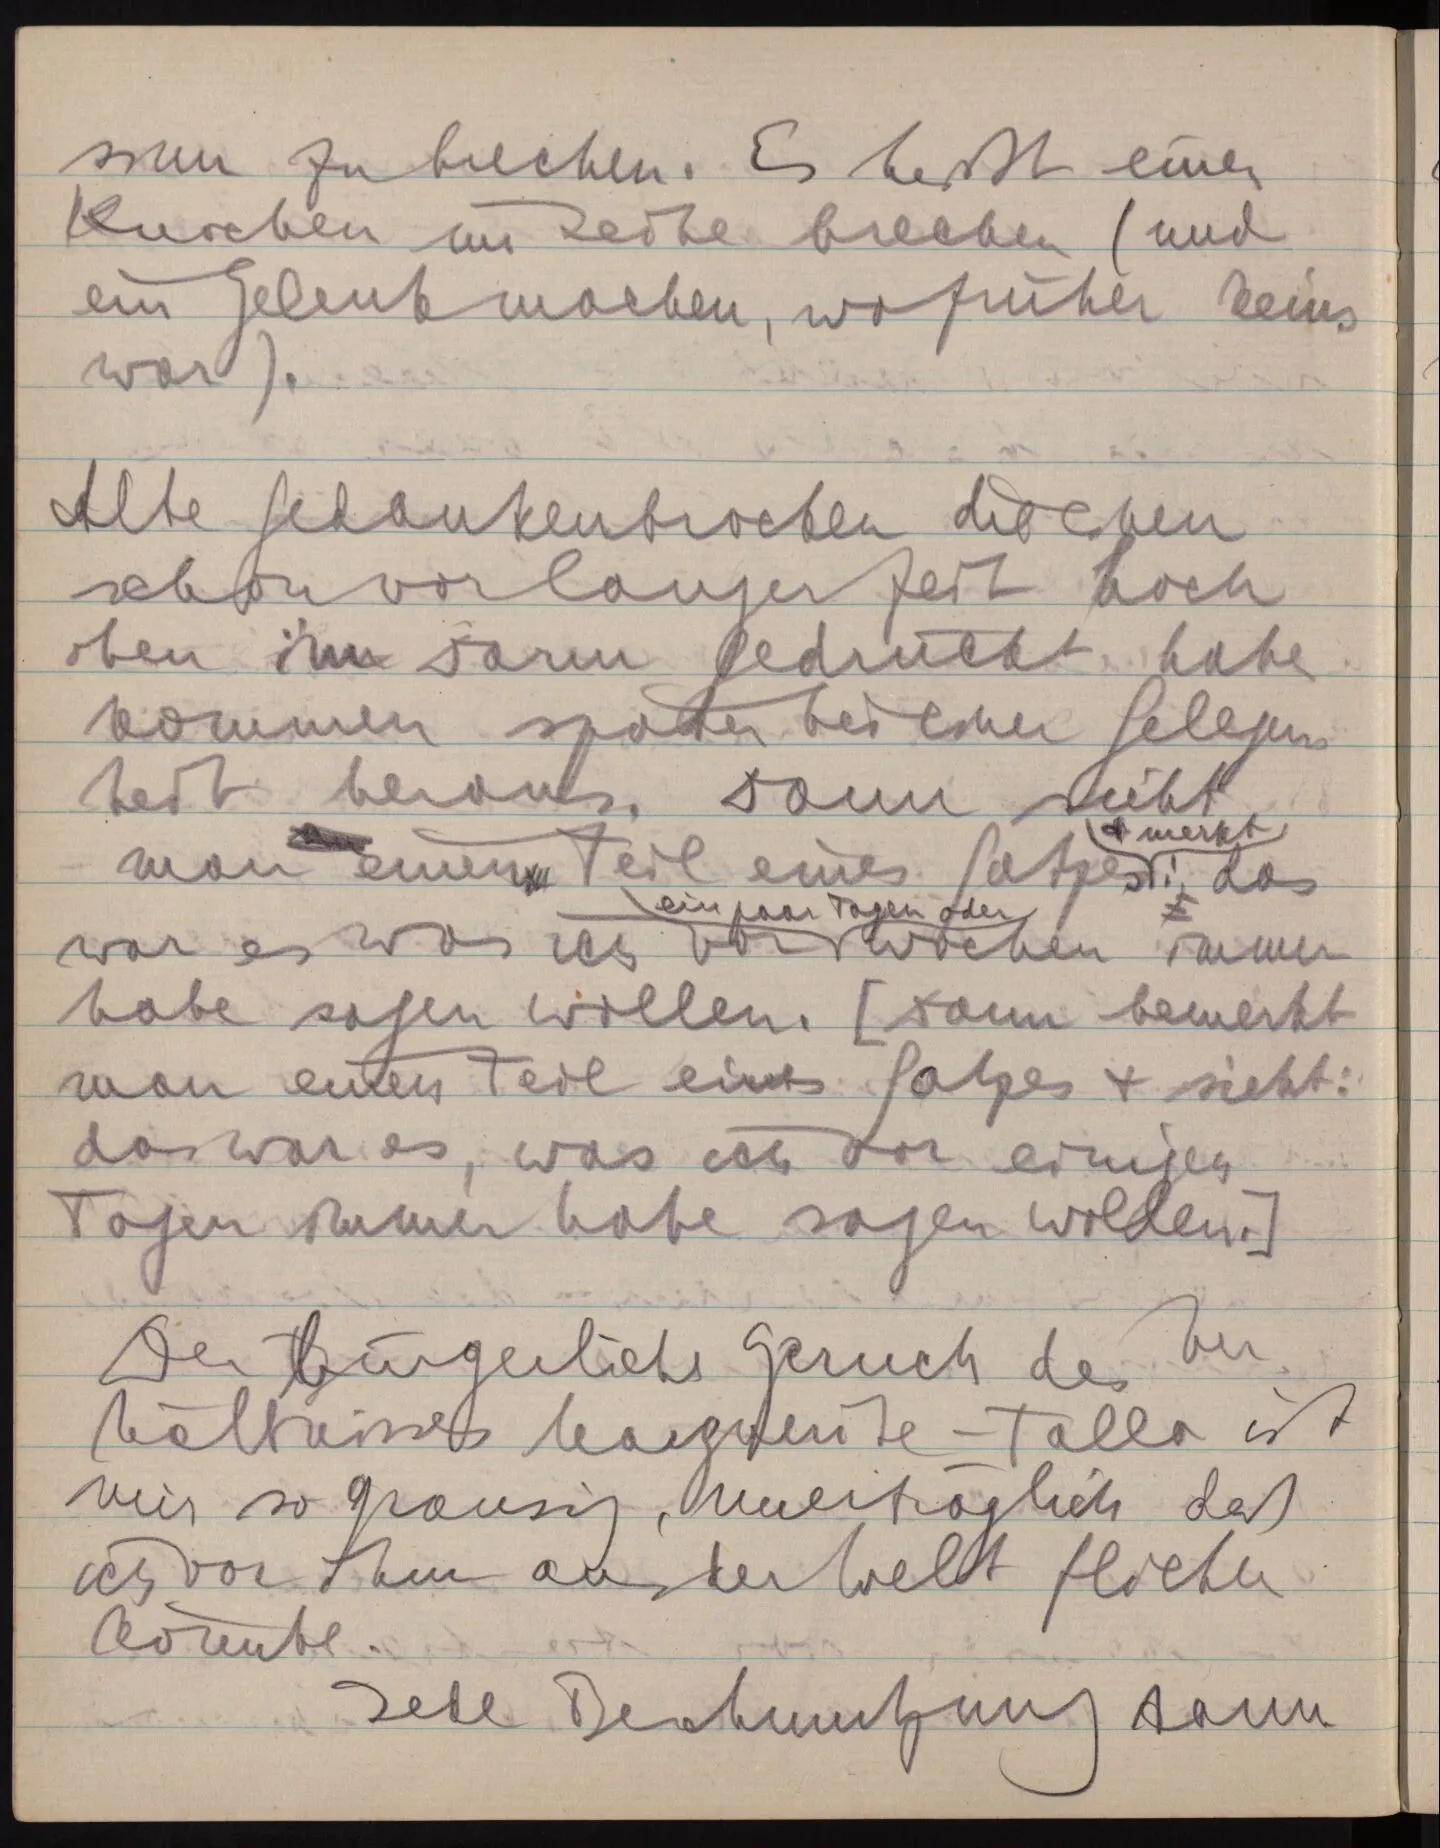 sinn zu brechen. Es heißt einen
Knochen im Leibe brechen (und
ein Gelenk machen, wo früher keins
war).
Alte Gedankenbrocken die einen
schon vor langer Zeit hoch
oben im Darm gedrückt habe
kommen später bei einer Gelegen
heit heraus. Dann sieht
& merkt
man einen Teil eines Satzes: das
ein paar Tagen oder
war es was ich vor Wochen immer
habe sagen wollen. [Dann bemerkt
man einen Teil eines Satzes & sieht:
das war es, was ich vor einigen
Tagen immer habe sagen wollen.]
Der bürgerliche Geruch des Ver
hältnisses Marguerite–Talla ist
mir so grausig, unerträglich daß
ich vor ihm aus der Welt fliehen
könnte.
Jede Beschmutzung kann